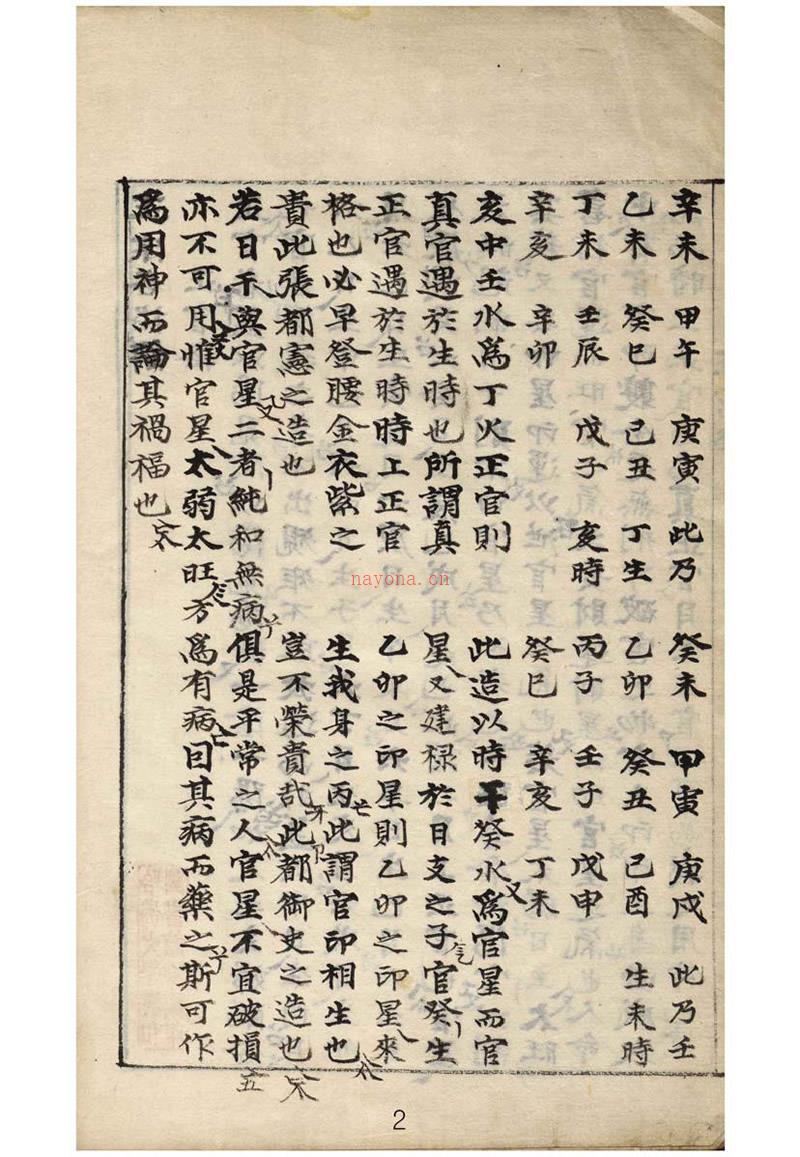 辛未 甲午 庚寅 此乃
乙未 癸巳 己丑 丁生
丁未 壬辰 戊子 亥時
辛亥 辛卯
亥中壬水爲丁火正官則
真官遇於生時也所謂真
正官遇於生時時上正官
格也必早登腰金衣紫之
貴此張都憲之造也
癸未 甲寅 庚戌 此乃壬
乙卯 癸丑 己酉 生未時
丙子 壬子 戊申
癸巳 辛亥 丁未
此造以時干癸水爲官星而官
星又建禄於日支之子官癸生
乙卯之印星則乙卯之印星來
生我身之丙此謂官印相生也
豈不榮貴哉此都御史之造也
若日干與官星二者純和無病俱是平常之人官星不宜破損
亦不可用惟官星太弱太旺方爲有病曰其病而藥之斯可作
爲用神而論其禍福也
nayona.cn
2